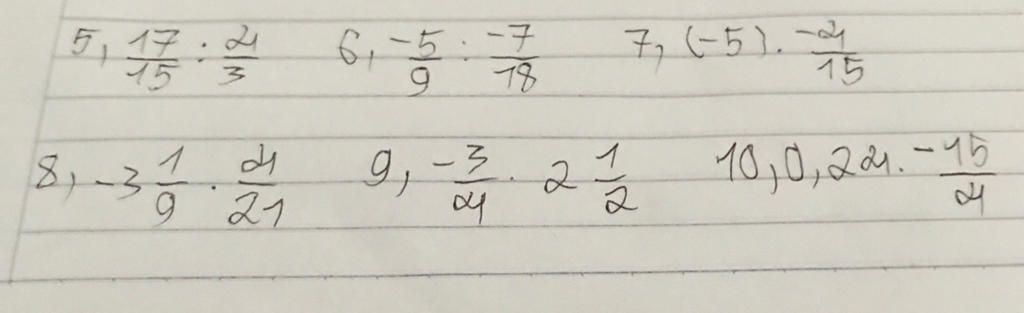 5, 17/15 : 4/3 6, -5/9 : -7/18 7, (-5) . -4/15
8, -3 1/9 . 4/21 9, -3/4 . 2 1/2 10, 0,24 . -15/4